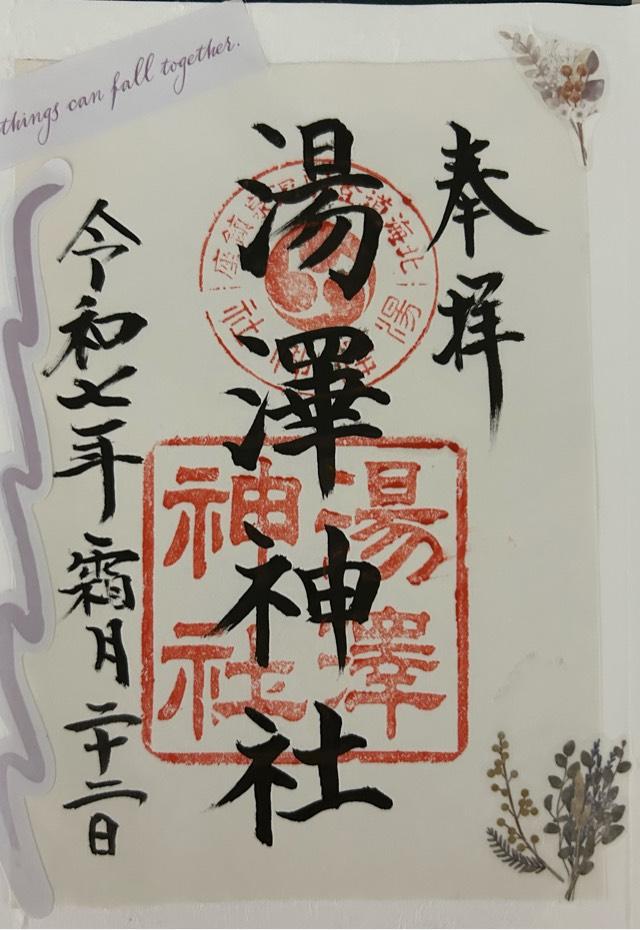 things can fall together.
奉拝
湯澤神社
令和七年霜月二十二日
湯澤
神社